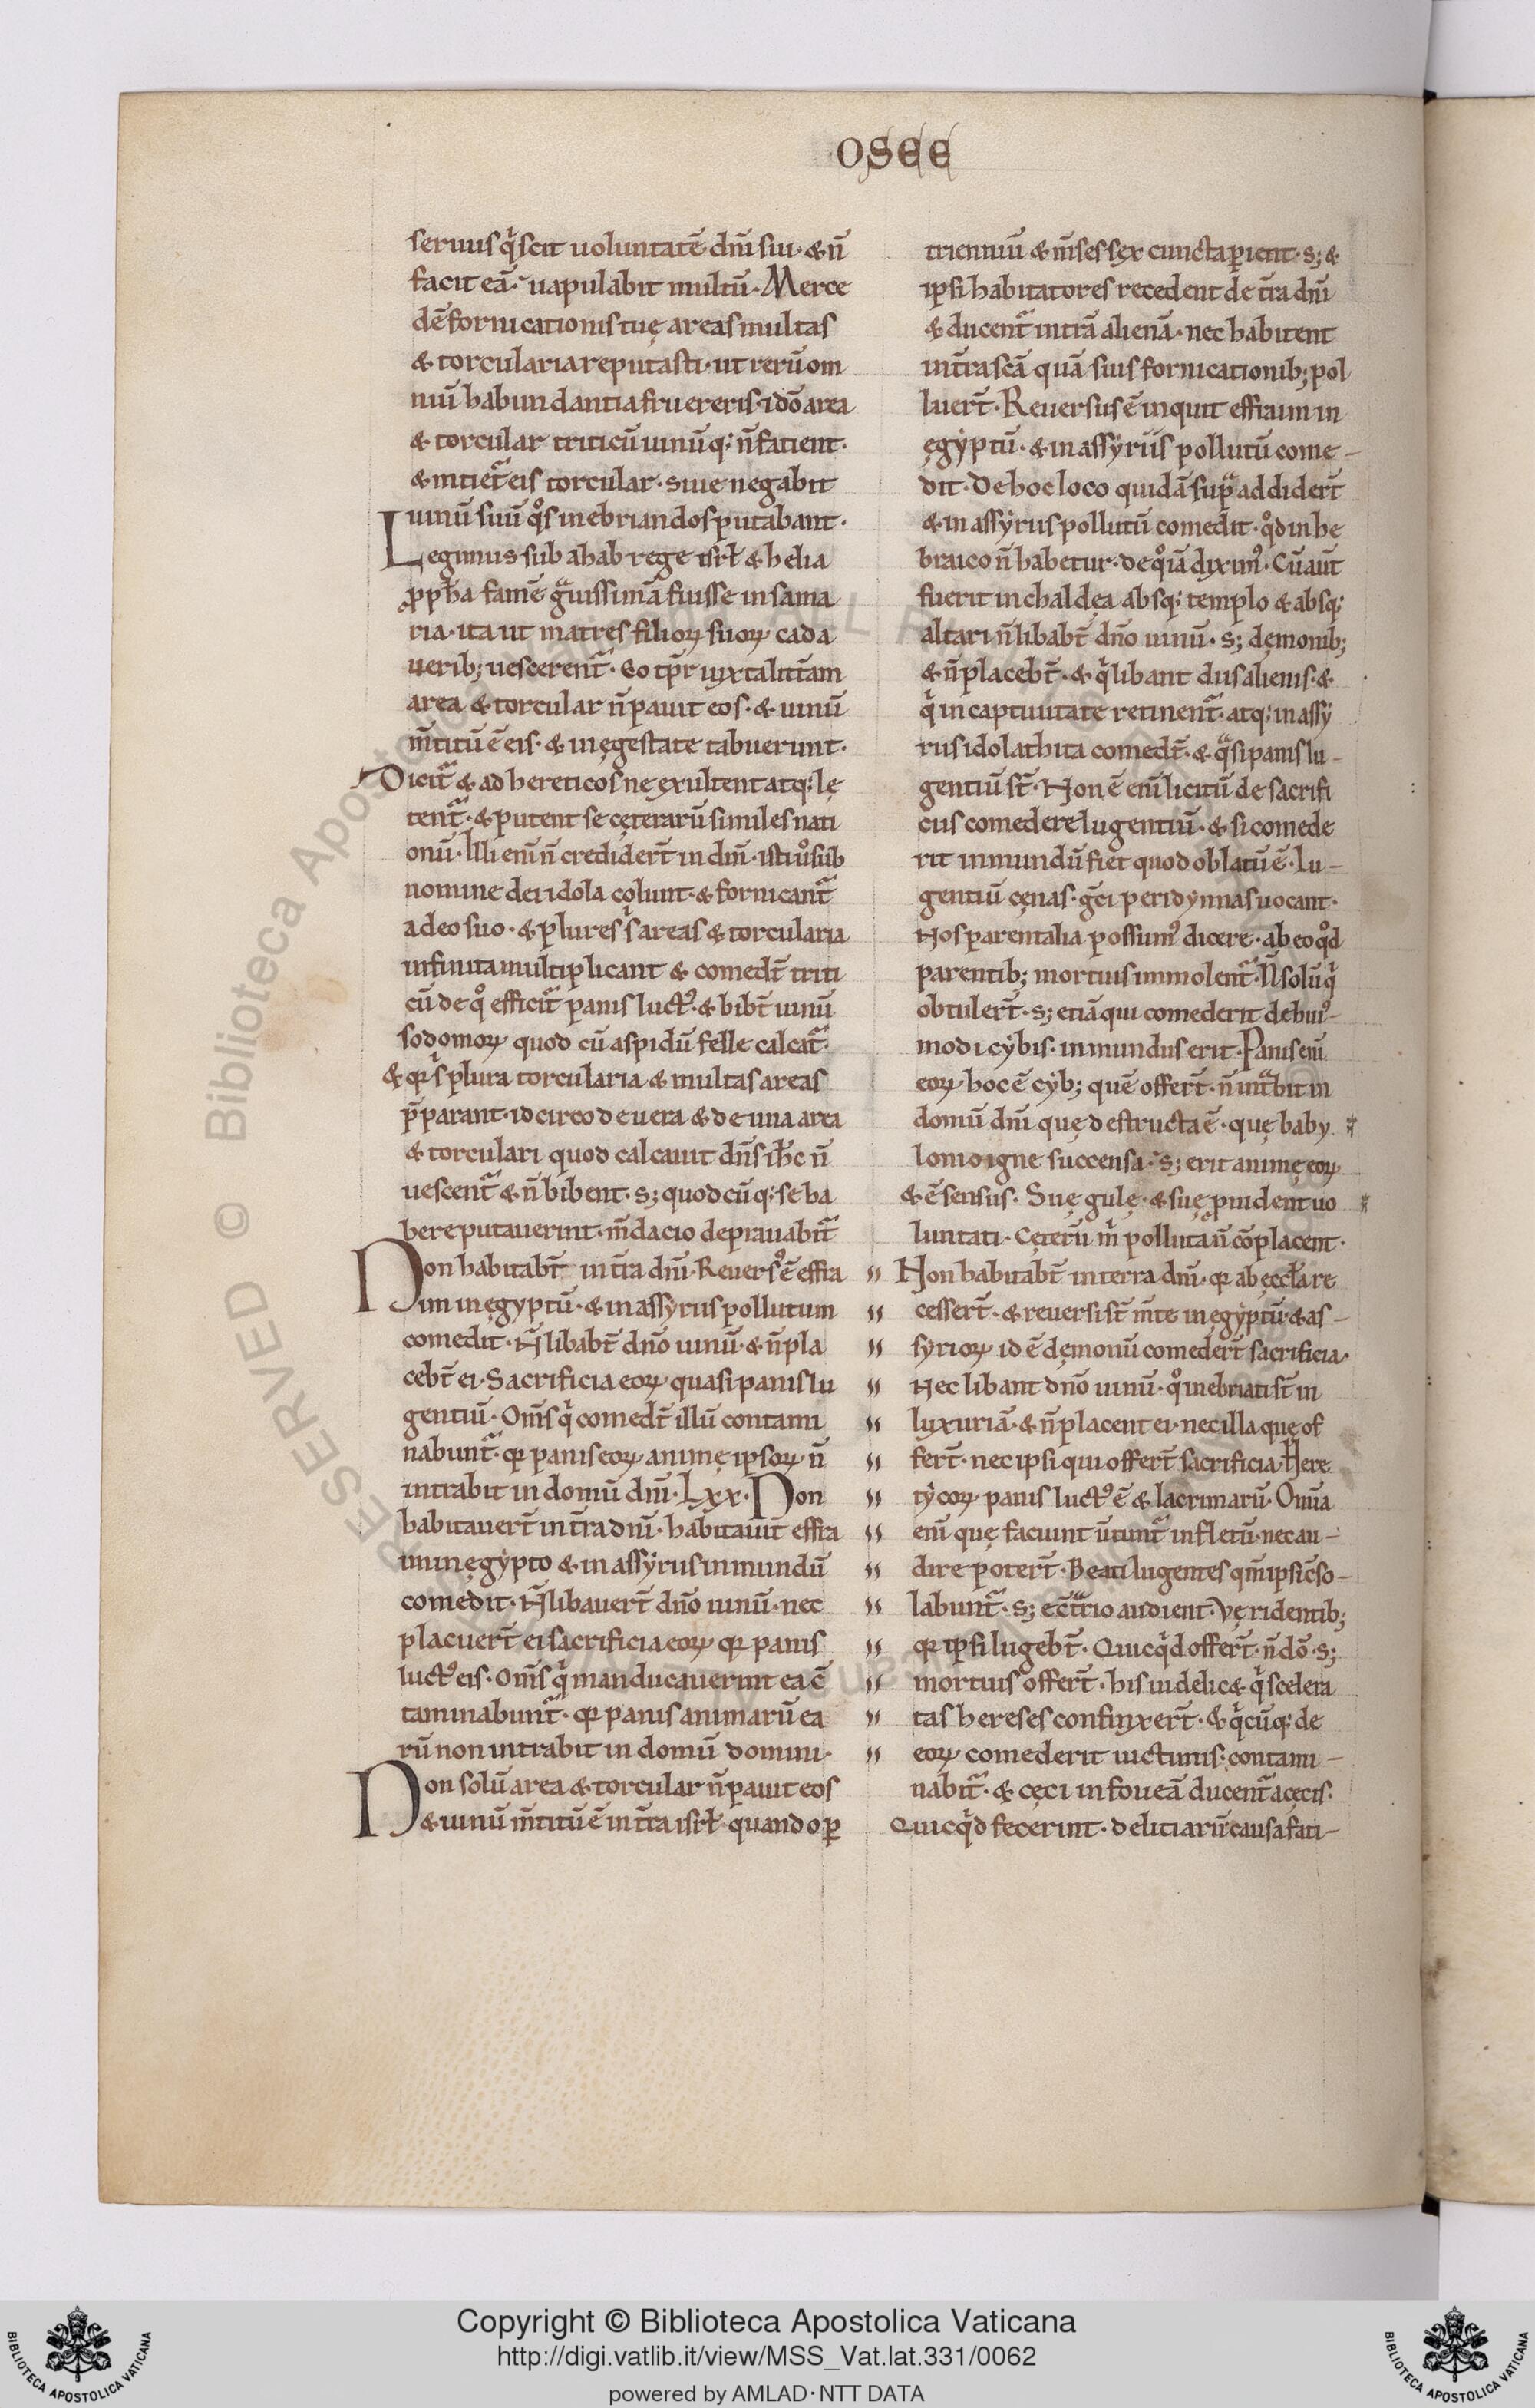 OSEE
seruus q̇ scit uoluntatē dn̄i sui· & n̄
facit eā· uapulabit multū· Merce
dē fornicationis tuę areas multas
& torcularia reputasti· ut rerū om
niū habundantia fruereris· idō area
& torcular triticū uinūq; n̄ facient·
& mtiet̄ eis torcular· siue negabit
uinū suū q̊s inebriandos putabant·
Legimus sub ahab rege isrł & helia
ꝓph̄a famē g̃uissimā fuisse in sama
ria· ita ut matres filioꝝ suoꝝ cada
uerib; uescerent̃· Eo tp̄r iuxta litt̄am
area & torcular n̄ pauit eos· & uinū
m̄titū ē eis· & in ęgestate tabuerunt·
Dicit̃ & ad hereticos ne exultent atq; lę
tent̃· & putent se cęterarū similes nati
onū· Illi enī n̄ credidert̄ in dm̄· isti ů sub
nomine dei idola colunt· & fornicant̃
a deo suo· & plures s̓ areas & torcularia
infinita multiplicant & comedt̄ triti
cū de q̊ efficit̃ panis luct᾽· & bibt̄ uinū
sodomoꝝ quod cū aspidū felle calcat̃·
& qꝛ s̓ plura torcularia & multas areas
p̄parant· idcirco de uera & de una area
& torculari quod calcauit dn̄s ih̄c n̄
uescent̃ & n̄ bibent· s; quodcūq; se ha
bere putauerint· m̄dacio deprauabit̃
Non habitabt̄ in t̄ra dn̄i· Reuers᾽ ē effra
im in egyptū· & in assyriis pollutum
comedit· N̄ libabt̄ dn̄o uinū· & n̄ pla
cebt̄ ei· Sacrificia eoꝝ quasi panis lu
gentiū· Om̄s q̇ comedt̄ illū contami
nabunt̃· qꝛ panis eoꝝ animę ipsoꝝ n̄
intrabit in domū dn̄i· Lxx· Non
habitauert̄ in t̄ra dn̄i· habitauit effra
im in ęgypto & in assyriis inmundū
comedit· N̄ libauert̄ dn̄o uinū· nec
placuert̄ ei sacrificia eoꝝ qꝛ panis
luct᾽ eis· Om̄s q̇ manducauerint ea c̄
taminabunt̃· qꝛ panis animarū ea
rū non intrabit in domū domini·
Non solū area & torcular n̄ pauit eos
& uinū m̄titū ē in t̄ra isrł· quando ꝑ
trienniū & m̄ses sex cuncta ꝑient· s; &
ipsi habitatores recedent de t̄ra dn̄i
& ducent̃ in t̄rā alienā· nec habitent
in t̄ra scā quā suis fornicationib; pol
luert̄· Reuersus ē inquit effraim in
ęgyptū· & in assyriis pollutū come-
dit· De hoc loco quidā sup̃ addidert̄
& in assyriis pollutū comedit· q̊d in he
braico n̄ habetur· de q̊ iā diximᵒ· Cū aut̄
fuerit in chaldęa absq; templo & absq;
altari n̄ libabt̄ dn̄o uinū· s; dęmonib;
& n̄ placebt̄· & q̇ libant diis alienis· &
q̇ in captiuitate retinent̃· atq; in assy
riis idolathita comedt̄· & q̃si panis lu-
gentiū st̄· Non ē enī licitū de sacrifi
ciis comedere lugentiū· & si comede
rit inmundū fiet quod oblatū ē· Lu-
gentiū cęnas· gc̄i peridypnas uocant·
Nos parentalia possumᵒ dicere· ab eo q̊d
parentib; mortuis immolent̃· N̄ solū q̇
obtulert̄· s; etiā qui comederit debui᾽-
modi cybis· inmundus erit· Panis enī
eoꝝ hoc ē cyb; quē offert̄· n̄ int̃bit in
domū dn̄i quę destructa ē· quę baby
lonio igne succensa· s; erit animę eoꝝ
& ē sensus· Suę gulę· & suę ꝓuident uo
luntati· Ceterū m̓ polluta n̄ cōplacent·
Non habitabt̄ in terra dn̄i· qꝛ ab ęccła re
cessert̄· & reuersi st̄ m̄te in ęgyptū· & as-
syrioꝝ id ē dęmonū comedert̄ sacrificia·
Nec libant dn̄o uinū· q̊ inebriati st̄ in
luxuriā· & n̄ placent ei· nec illa quę of
fert̄· nec ipsi qui offert̄ sacrificia· Here
tycoꝝ panis luct᾽ ē & lacrimarū· Omīa
enī quę faciunt ūtunt̃ in fletū· nec au-
dire potert̄· Beati lugentes qm̄ ipsi c̄so-
labunt̃· s; ec̄t̃rio audient· Vę ridentib;
qꝛ ipsi lugebt̄· Quicq̇d offert̄· n̄ dō· s;
mortuis offert̄· his uidelic& q̇ scelera
tas hereses confinxert̄· & q̇cūq; de
eoꝝ comederit uictimis· contami-
nabit̃· & cęci in foueā ducent̃ a cęcis·
Quicq̇d fecerint· delitiarū causa fati-
Copyright © Biblioteca Apostolica Vaticana
http://digi.vatlib.it/view/MSS_Vat.lat.331/0062
powered by AMLAD·NTT DATA
BIBLIOTECA APOSTOLICA VATICANA
BIBLIOTECA APOSTOLICA VATICANA